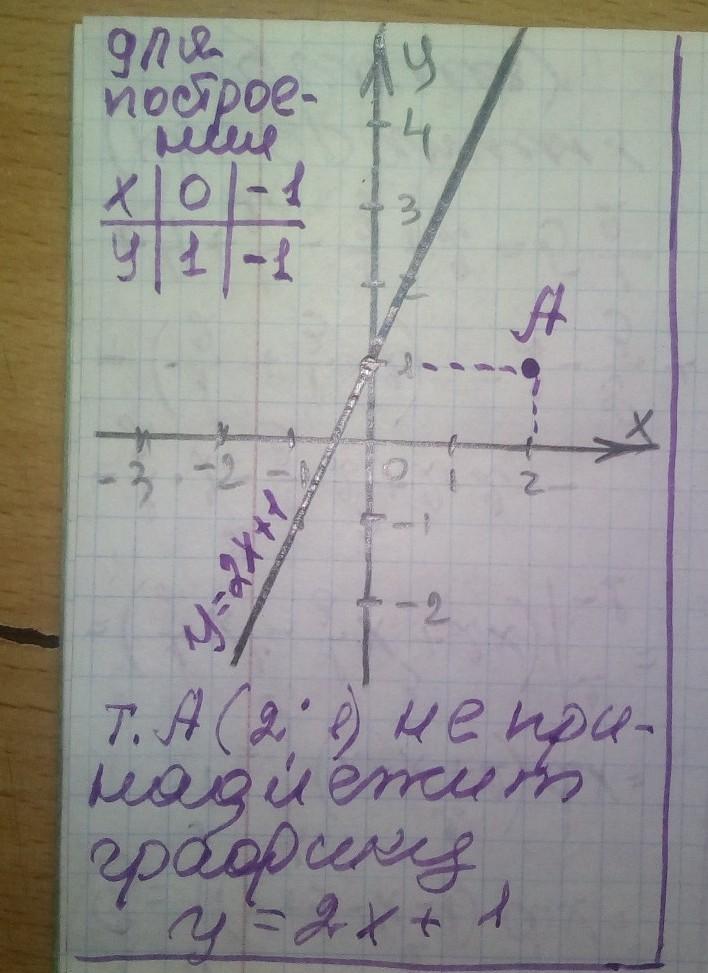 для
построе-
ния
x | 0 | -1
y | 1 | -1
y
4
3
2
A
1
x
-3 -2 -1 0 1 2
-1
y=2x+1
-2
т. A (2; 1) не при-
надлежит
графику
y = 2x + 1